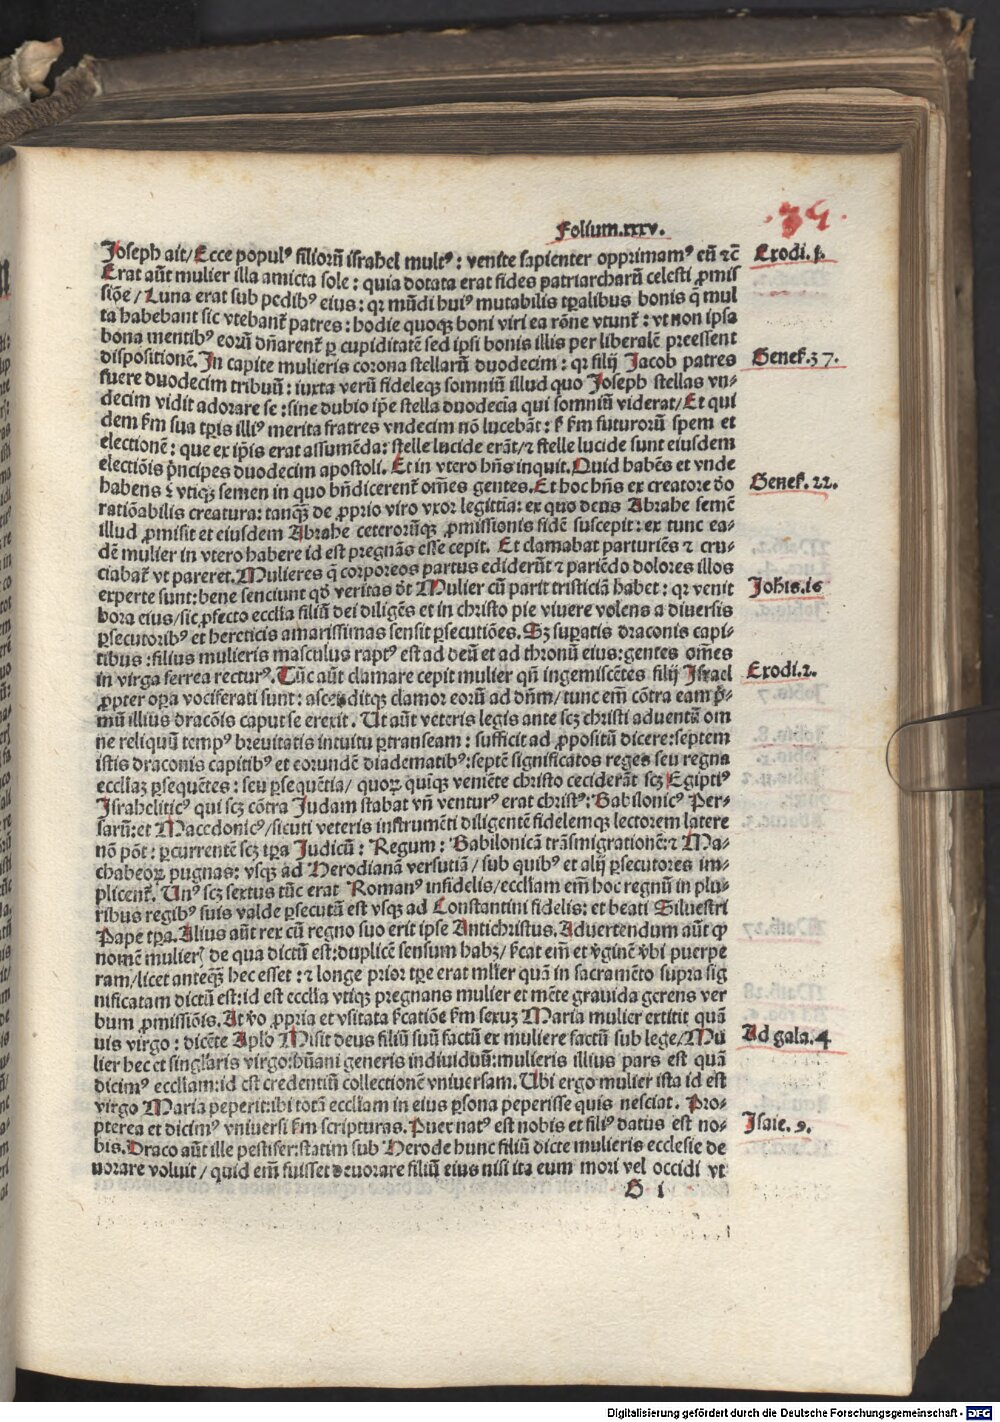 Folium.xxxv.
34.
Joseph ait/Ecce populꝰ filiorū israhel multꝰ: venite sapienter opprimamꝰ eū ⁊c̄
Exodi.j.
Erat aūt mulier illa amicta sole: quia dotata erat fides patriarcharū celesti ꝓmis
siōe/Luna erat sub pedibꝰ eius: qꝛ mūdi huiꝰ mutabilis tp̄alibus bonis q̄ mul
ta habebant sic vtebant᷑ patres: hodie quoqꝫ boni viri ea rōne vtunt᷑: vt non ipsa
bona mentibꝰ eorū dn̄arent᷑ ꝑ cupiditatē sed ipsi bonis illis per liberalē preessent
dispositionē. In capite mulieris corona stellarū duodecim: qꝛ filij Jacob patres
Genes.37.
fuere duodecim tribuū: iuxta verū fideleqꝫ somniū illud quo Joseph stellas vn⸗
decim vidit adorare se: sine dubio ip̄e stella duodecīa qui somniū viderat/Et qui
dem ẜm sua tp̄is illiꝰ merita fratres vndecim nō lucebāt: ẜ ẜm futurorū spem et
electionē: que ex ip̄is erat assumēda: stelle lucide erāt/⁊ stelle lucide sunt eiusdem
electiōis p̄ncipes duodecim apostoli. Et in vtero hn̄s inquit. Quid habēs et vnde
habens ẜ vtiqꝫ semen in quo bn̄dicerent᷑ om̄es gentes. Et hoc hn̄s ex creatore deo
Genes.22.
ratiōabilis creatura: tanqꝫ de ꝓprio viro vxor legittīa: ex quo deus Abrahe semē
illud ꝓmisit et eiusdem Abrahe ceterorūqꝫ ꝓmissionis fidē suscepit: ex tunc ea⸗
dē mulier in vtero habere id est pregnās esse cepit. Et clamabat parturiēs ⁊ cru⸗
ciabat᷑ vt pareret. Mulieres q̄ corporeos partus ediderūt ⁊ pariēdo dolores illos
experte sunt: bene senciunt qd̄ veritas dt̄ Mulier cū parit tristiciā habet: qꝛ venit
Johis.16
hora eius/sic ꝓfecto ecclīa filiū dei diligēs et in christo pie vivere volens a diversis
ꝑsecutoribꝰ et hereticis amarissimas sensit ꝑsecutiōes. Sꝫ suꝑatis draconis capi⸗
tibus: filius mulieris masculus raptꝰ est ad deū et ad thronū eius: gentes om̄es
in virga ferrea recturꝰ. Tūc aūt clamare cepit mulier qn̄ ingemiscētes filij Israel
Exodi.2.
ꝓpter oꝑa vociferati sunt: ascenditqꝫ clamor eorū ad dn̄m/tunc em̄ cōtra eam p̄⸗
mū illius dracōis caput se erexit. Ut aūt veteris legis ante scꝫ christi adventū om
ne reliquū tempꝰ brevitatis intuitu ꝑtranseam: sufficit ad ꝓpositū dicere: septem
istis draconis capitibꝰ et eorundē diadematibꝰ: septē significatos reges seu regna
ecclīaꝫ ꝑsequētes: seu ꝑsequētia/ quoꝝ quīqꝫ veniēte christo ceciderāt scꝫ Egiptiꝰ
Israheliticꝰ qui scꝫ cōtra Judam stabat vn̄ venturꝰ erat christꝰ: Babilonicꝰ Per⸗
sarū: et Macedonicꝰ/sicuti veteris instrumēti diligentē fidelemqꝫ lectorem latere
nō pōt: ꝑcurrentē scꝫ tp̄a Judicū: Regum: Babilonicā trāsmigrationē: ⁊ Ma⸗
chabeoꝝ pugnas: vsqꝫ ad Herodianā versutiā/ sub quibꝰ et alij ꝑsecutores im⸗
plicent᷑. Unꝰ scꝫ sextus tūc erat Romanꝰ infidelis/eccl̄iam em̄ hoc regnū in plu⸗
ribus regibꝰ suis valde ꝑsecutū est vsqꝫ ad Constantini fidelis: et beati Silvestri
Pape tp̄a. Alius aūt rex cū regno suo erit ipse Antichristus. Advertendum aūt ꝙ
nomē mulier? de qua dictū est: duplicē sensum habꝫ/ ẜcat em̄ et v̓ginē v̓bi puerpe
ram/licet anteqꝫ hec esset: ⁊ longe prior tp̄e erat ml̄ier quā in sacramēto supra sig
nificatam dictū est: id est eccl̄ia vtiqꝫ pregnans mulier et mēte gravida gerens ver
bum ꝓmissiōis. At v̓o ꝓpria et vsitata ẜcatiōe ẜm sexuꝫ Maria mulier extitit quā
vis virgo: dicēte Apl̄o Misit deus filiū suū factū ex muliere factū sub lege/Mu
Ad gala.4
lier hec et singl̄aris virgo: hūani generis indiuiduū: mulieris illius pars est quā
dicimꝰ eccl̄iam: id est credentiū collectionē vniuersam. Ubi ergo mulier ista id est
virgo Maria peperit: ibi totā eccl̄iam in eius ꝑsona peperisse quis nesciat. Pro⸗
pterea et dicimꝰ vniuersi ẜm scripturas. Puer natꝰ est nobis et filiꝰ datus est no⸗
Isaie.9.
bis. Draco aūt ille pestifer: statim sub Herode hunc filiū dicte mulieris ecclesie de
uorare voluit/ quid em̄ fuisset deuorare filiū eius nisi ita eum mori vel occidi vt
G i
Digitalisierung gefördert durch die Deutsche Forschungsgemeinschaft - DFG